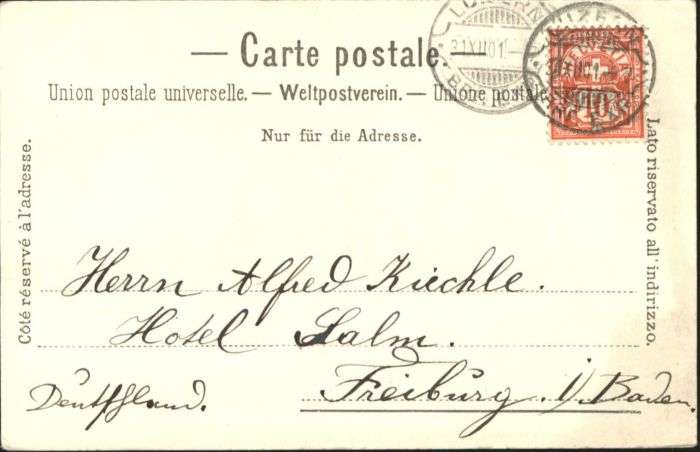 LUZERN
31.XII.01.
HELVETIA
10
— Carte postale. —
Union postale universelle. — Weltpostverein. — Unione postale
Nur für die Adresse.
Côté réservé à l'adresse.
Lato riservato all'indirizzo.
Herrn Alfred Kiechle.
Hotel Salm.
Freiburg i/Baden.
Deutschland.